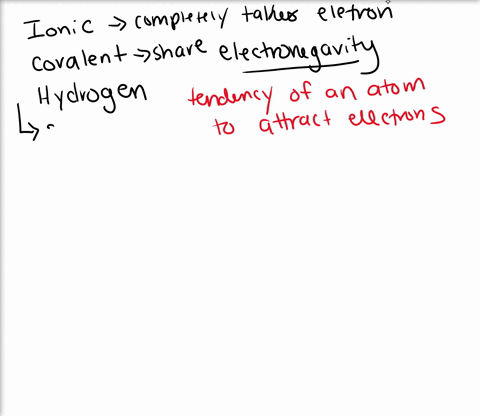 Ionic → completely takes eletron
covalent → share electronegavity
Hydrogen
tendency of an atom
to attract electrons
↳